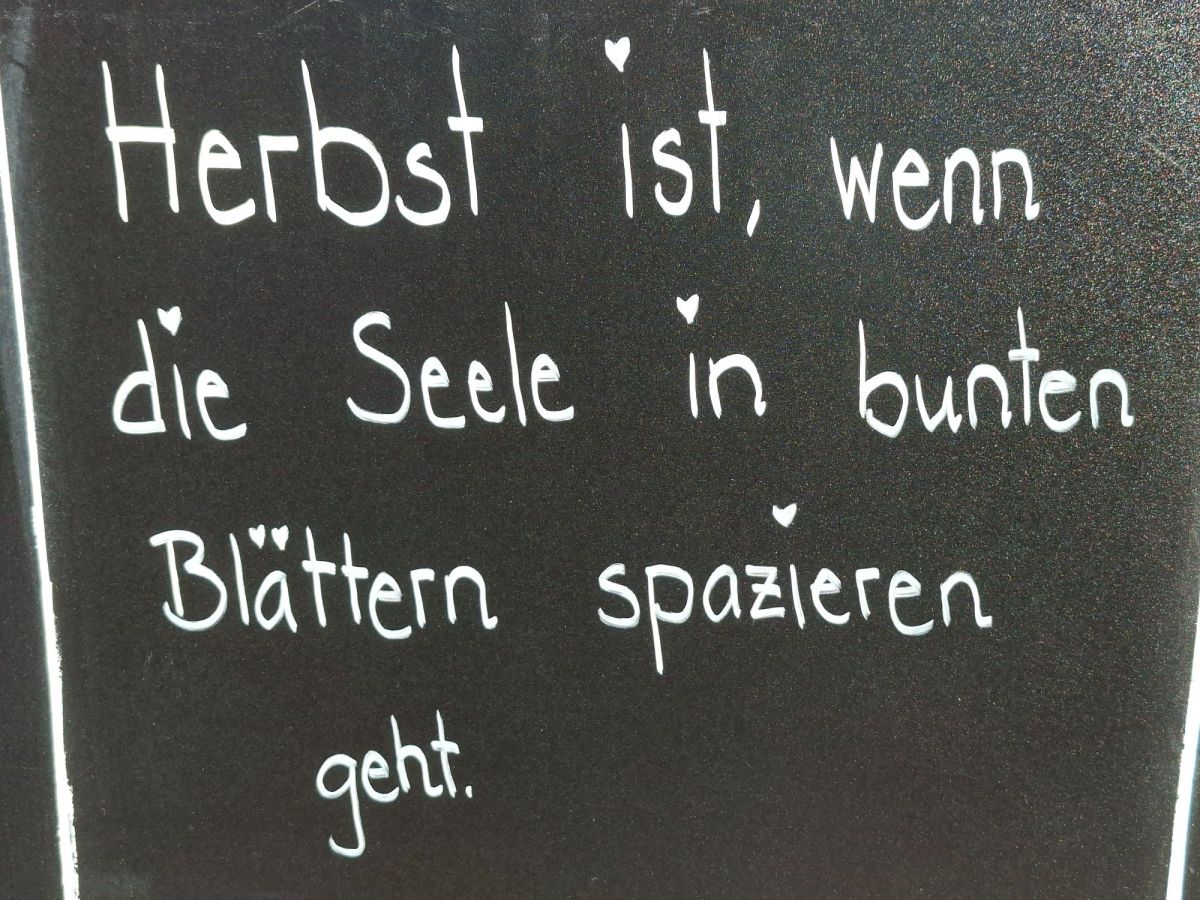 Herbst ist, wenn
die Seele in bunten
Blättern spazieren
geht.